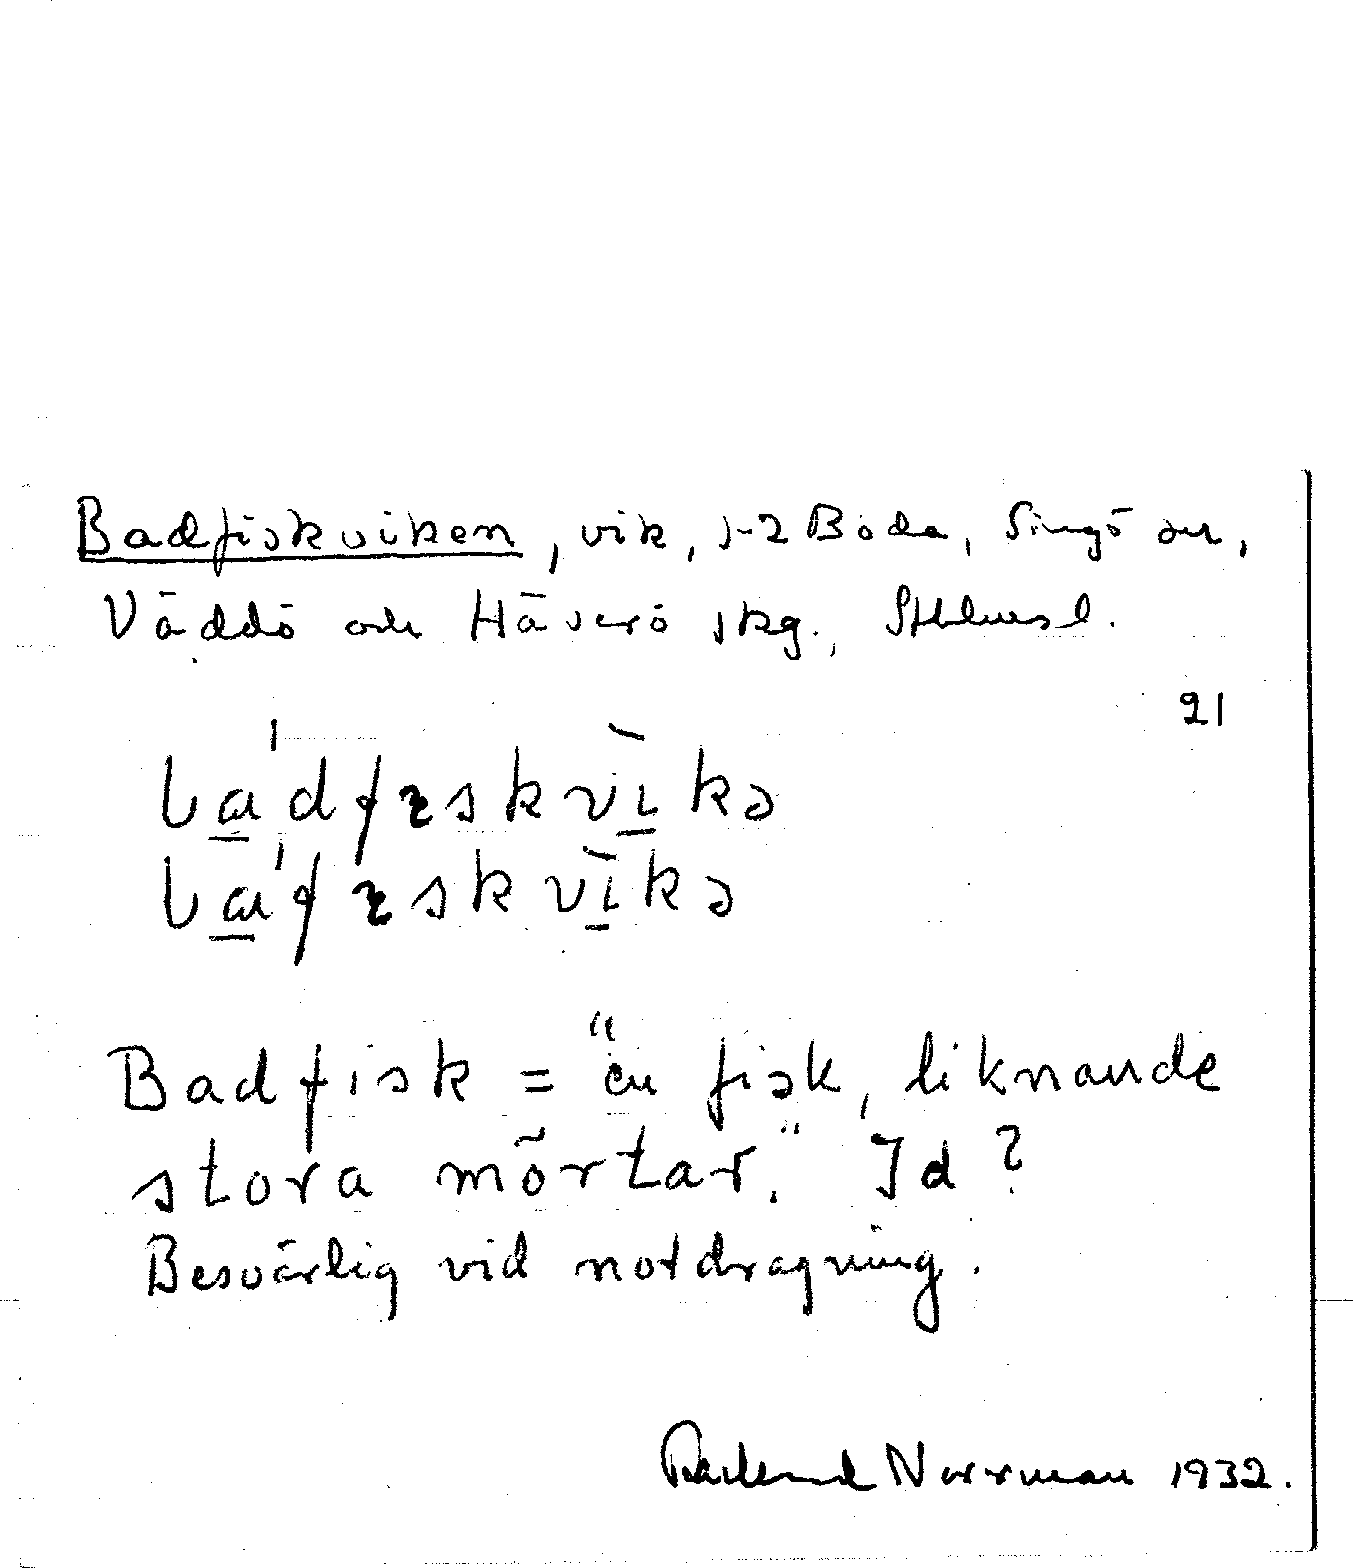 Badfiskviken, vik, 1-2 Boda, Singö sn,
Väddö och Häverö skg., Sthlmsl.
21
Badfisk = "en fisk, liknande
stora mörtar." Id?
Besvärlig vid notdragning.
Norrman 1932.